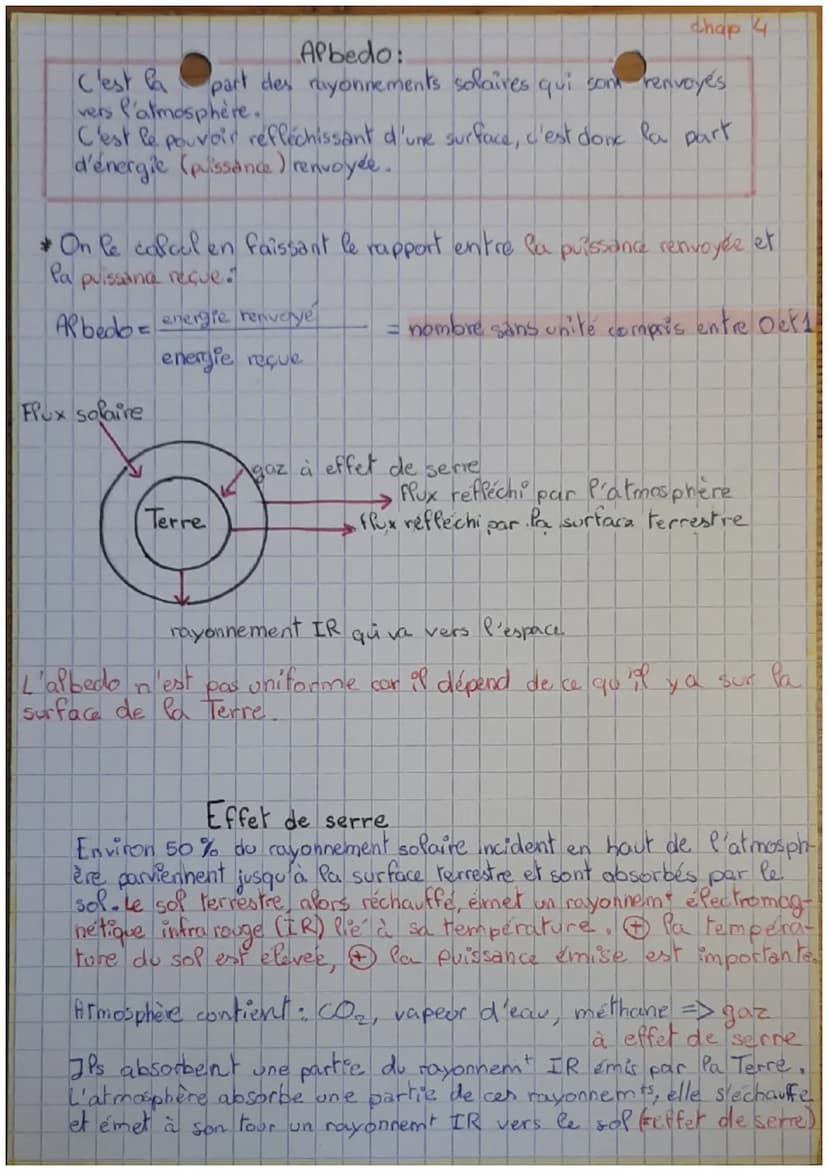 chap 4
Albedo:
C'est la part des rayonnements solaires qui sont renvoyés
vers l'atmosphère.
C'est le pouvoir réfléchissant d'une surface, c'est donc la part
d'énergie (puissance) renvoyée.
* On le calcul en faisant le rapport entre la puissance renvoyée et
la puissance reçue:
Albedo = energie renvoyé / energie reçue = nombre sans unité compris entre 0 et 1
Flux solaire
gaz à effet de serre
flux réfléchi par l'atmosphère
Terre
flux réfléchi par la surface terrestre
rayonnement IR qui va vers l'espace
L'albedo n'est pas uniforme car il dépend de ce qu'il y a sur la
surface de la Terre.
Effet de serre
Environ 50 % du rayonnement solaire incident en haut de l'atmosph-
ère parviennent jusqu'à la surface terrestre et sont absorbés par le
sol. Le sol terrestre, alors réchauffé, émet un rayonnemt électromag-
nétique infra rouge (IR) lié à sa température. ⊕ la tempéra-
ture du sol est élevée, ⊕ la puissance émise est importante.
Atmosphère contient : CO₂, vapeur d'eau, méthane => gaz
à effet de serre
Ils absorbent une partie du rayonnemt IR émis par la Terre.
L'atmosphère absorbe une partie de ces rayonnemts, elle s'échauffe
et émet à son tour un rayonnemt IR vers le sol (=effet de serre)